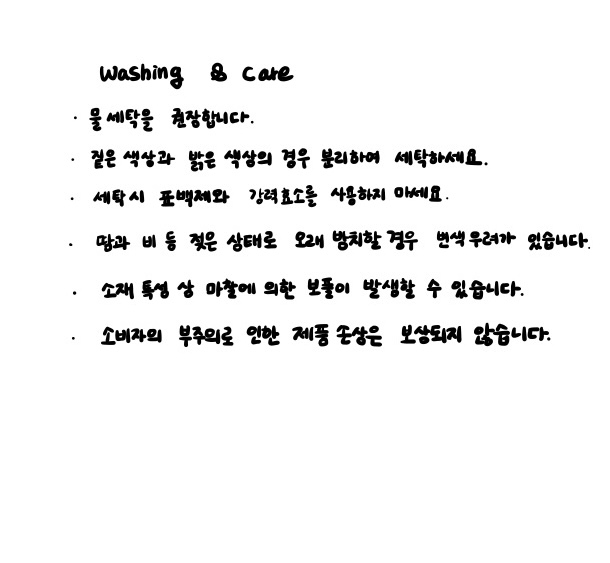 Washing & Care
· 물세탁을 권장합니다.
· 짙은 색상과 밝은 색상의 경우 분리하여 세탁하세요.
· 세탁시 표백제와 강력효소를 사용하지 마세요.
· 땀과 비 등 젖은 상태로 오래 방치할 경우 변색우려가 있습니다.
· 소재 특성 상 마찰에 의한 보풀이 발생할 수 있습니다.
· 소비자의 부주의로 인한 제품손상은 보상되지 않습니다.